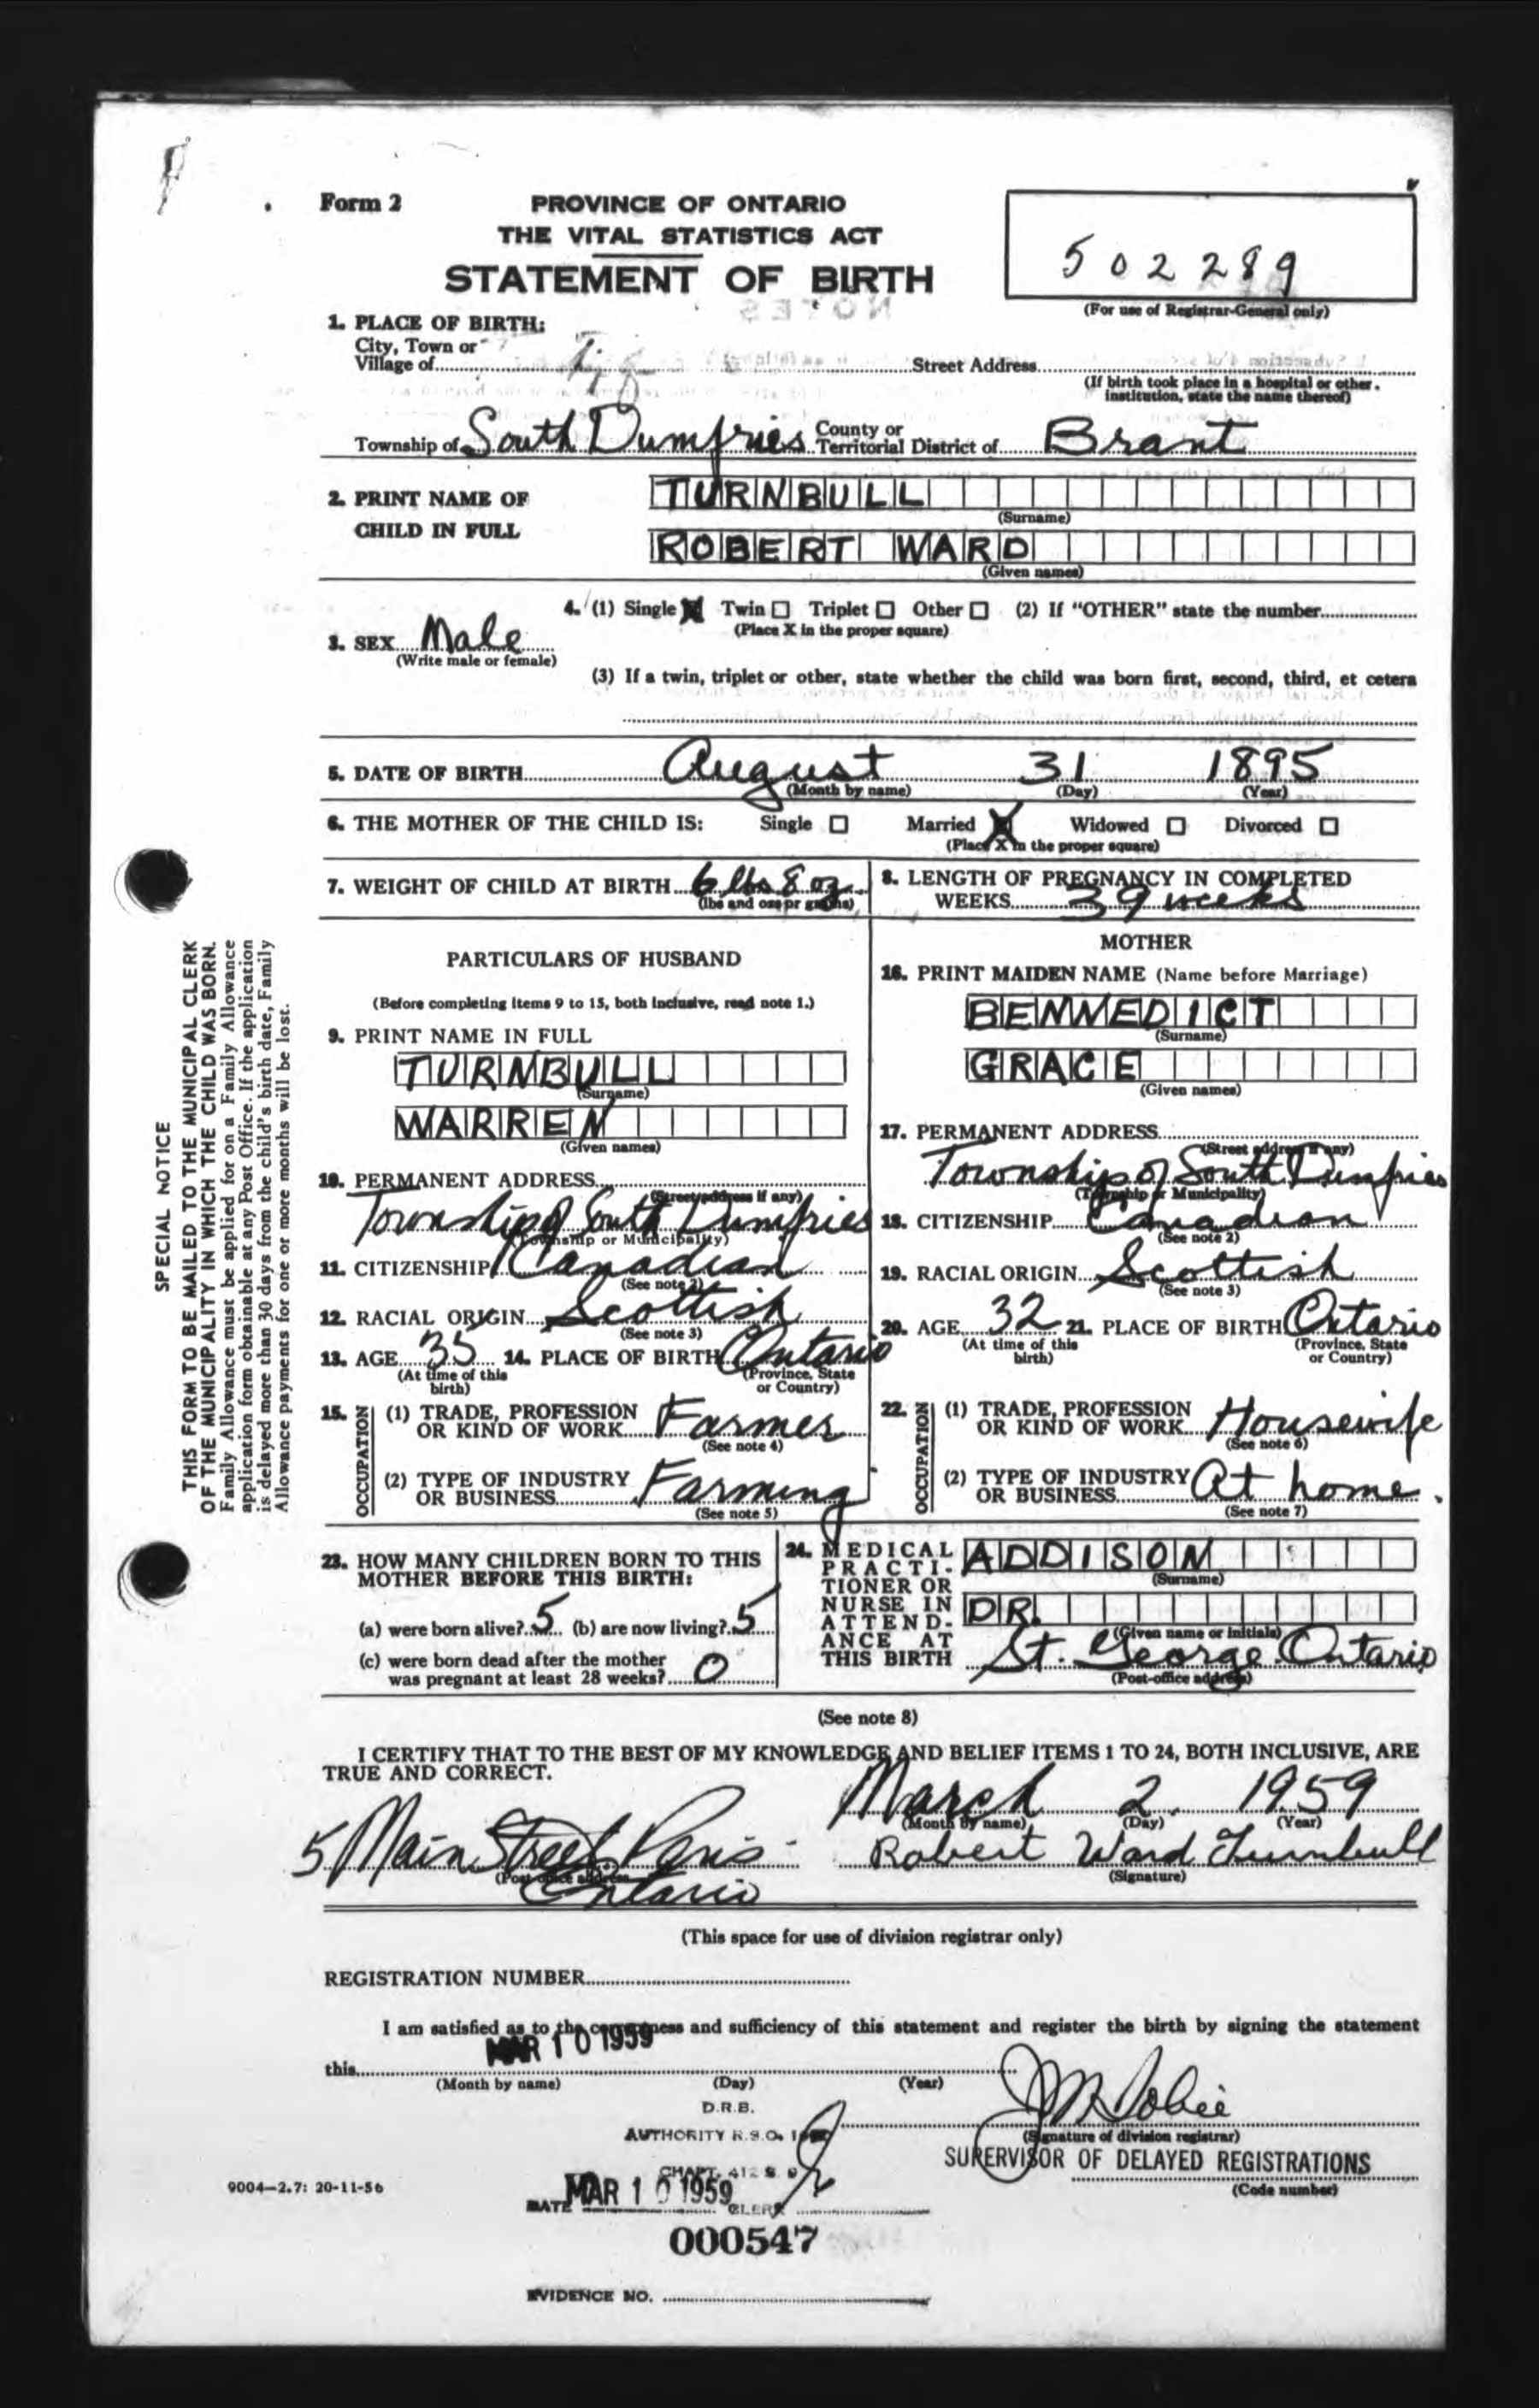 Form 2
PROVINCE OF ONTARIO
THE VITAL STATISTICS ACT
STATEMENT OF BIRTH
502289
(For use of Registrar-General only)
1. PLACE OF BIRTH:
City, Town or
Village of Street Address
(If birth took place in a hospital or other institution, state the name thereof)
Township of South Dumfries County or Territorial District of Brant
2. PRINT NAME OF CHILD IN FULL
TURNBULL
(Surname)
ROBERT WARD
(Given names)
3. SEX Male
(Write male or female)
4. (1) Single X Twin ☐ Triplet ☐ Other ☐ (2) If "OTHER" state the number
(Place X in the proper square)
(3) If a twin, triplet or other, state whether the child was born first, second, third, et cetera
5. DATE OF BIRTH August 31 1895
(Month by name) (Day) (Year)
6. THE MOTHER OF THE CHILD IS: Single ☐ Married X Widowed ☐ Divorced ☐
(Place X in the proper square)
7. WEIGHT OF CHILD AT BIRTH 6 lbs 8 oz
(lbs and ozs or grams)
8. LENGTH OF PREGNANCY IN COMPLETED
WEEKS 39 weeks
PARTICULARS OF HUSBAND
(Before completing items 9 to 15, both inclusive, read note 1.)
9. PRINT NAME IN FULL
TURNBULL
(Surname)
WARREN
(Given names)
10. PERMANENT ADDRESS
(Street address if any)
Township of South Dumfries
(Township or Municipality)
11. CITIZENSHIP Canadian
(See note 2)
12. RACIAL ORIGIN Scottish
(See note 3)
13. AGE 35 14. PLACE OF BIRTH Ontario
(At time of this birth) (Province, State or Country)
15. OCCUPATION
(1) TRADE, PROFESSION
OR KIND OF WORK Farmer
(See note 4)
(2) TYPE OF INDUSTRY
OR BUSINESS Farming
(See note 5)
MOTHER
16. PRINT MAIDEN NAME (Name before Marriage)
BENNEDICT
(Surname)
GRACE
(Given names)
17. PERMANENT ADDRESS
(Street address if any)
Township of South Dumfries
(Township or Municipality)
18. CITIZENSHIP Canadian
(See note 2)
19. RACIAL ORIGIN Scottish
(See note 3)
20. AGE 32 21. PLACE OF BIRTH Ontario
(At time of this birth) (Province, State or Country)
22. OCCUPATION
(1) TRADE, PROFESSION
OR KIND OF WORK Housewife
(See note 6)
(2) TYPE OF INDUSTRY
OR BUSINESS At home.
(See note 7)
23. HOW MANY CHILDREN BORN TO THIS
MOTHER BEFORE THIS BIRTH:
(a) were born alive? 5 (b) are now living? 5
(c) were born dead after the mother
was pregnant at least 28 weeks? 0
24. MEDICAL PRACTITIONER OR NURSE IN ATTENDANCE AT THIS BIRTH
ADDISON
(Surname)
DR.
(Given name or initials)
St. George Ontario
(Post-office address)
(See note 8)
I CERTIFY THAT TO THE BEST OF MY KNOWLEDGE AND BELIEF ITEMS 1 TO 24, BOTH INCLUSIVE, ARE
TRUE AND CORRECT.
March 2. 1959
(Month by name) (Day) (Year)
5 Main Street Paris Robert Ward Turnbull
(Post-office address) (Signature)
Ontario
(This space for use of division registrar only)
REGISTRATION NUMBER
I am satisfied as to the correctness and sufficiency of this statement and register the birth by signing the statement
MAR 10 1959
this
(Month by name) (Day) (Year)
D.R.B.
AUTHORITY R.S.O.
(Signature of division registrar)
SUPERVISOR OF DELAYED REGISTRATIONS
CHAPT. 412 S. 9
(Code number)
9004—2.7: 20-11-56
DATE MAR 10 1959 CLERK
000547
EVIDENCE NO.
SPECIAL NOTICE
THIS FORM TO BE MAILED TO THE MUNICIPAL CLERK
OF THE MUNICIPALITY IN WHICH THE CHILD WAS BORN.
Family Allowance must be applied for on a Family Allowance
application form obtainable at any Post Office. If the application
is delayed more than 30 days from the child's birth date, Family
Allowance payments for one or more months will be lost.